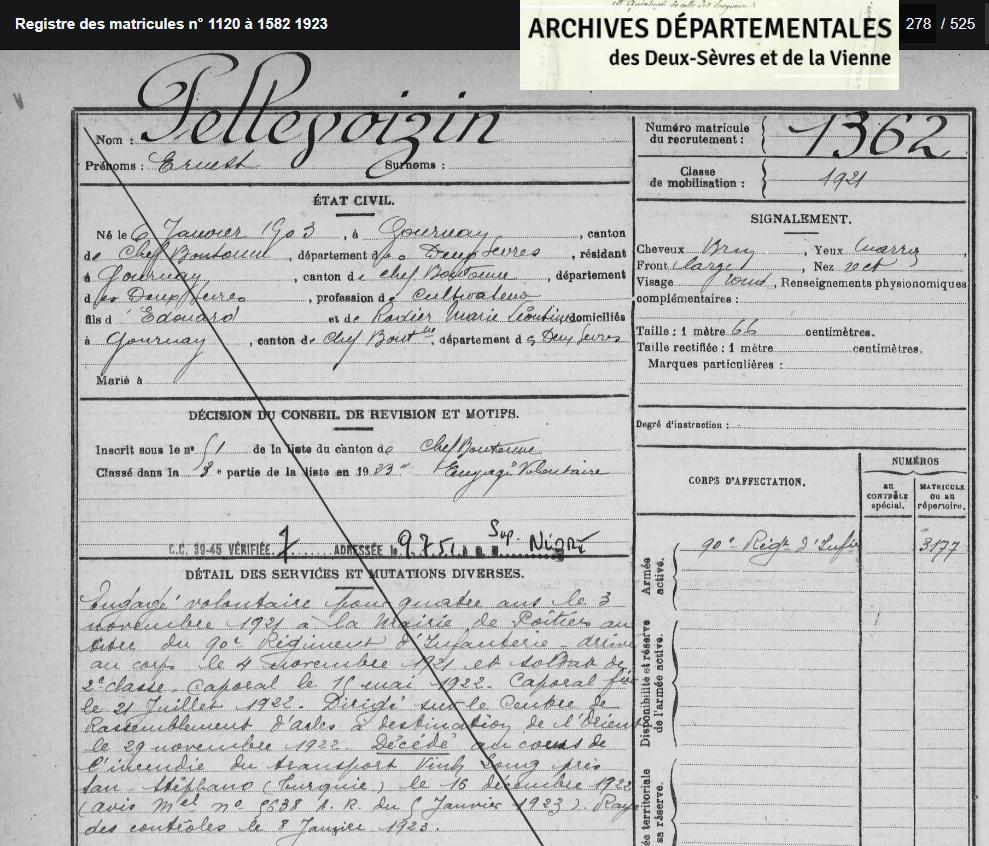 Registre des matricules n° 1120 à 1582 1923
ARCHIVES DÉPARTEMENTALES
des Deux-Sèvres et de la Vienne
278 / 525
Nom : Pellevoizin
Prénoms : Ernest Surnoms :
ÉTAT CIVIL.
Né le 6 Janvier 1903, à Gournay, canton
de Chef Boutonne, département des Deux Sèvres, résidant
à Gournay, canton de Chef Boutonne, département
des Deux Sèvres, profession de Cultivateur
fils d' Edouard et de Rodier Marie Léontine domiciliés
à Gournay, canton de Chef Boutne, département des Deux Sèvres
Marié à
DÉCISION DU CONSEIL DE REVISION ET MOTIFS.
Inscrit sous le n° 51 de la liste du canton de Chef Boutonne
Classé dans la 3e partie de la liste en 1923 Engagé Volontaire
C.C. 39-45 VÉRIFIÉE ADRESSÉE le 9.7.51 Sup. Niort
DÉTAIL DES SERVICES ET MUTATIONS DIVERSES.
Engagé volontaire pour quatre ans le 3
novembre 1921 à la Mairie de Poitiers au
titre du 90e Régiment d'Infanterie - arrivé
au corps le 4 Novembre 1921 et soldat de
2e classe. Caporal le 16 mai 1922. Caporal
le 21 Juillet 1922. Dirigé sur le Centre de
Rassemblement d'Arles à destination de l'Orient
le 29 novembre 1922. Décédé au cours de
l'incendie du transport Vinh Long près
San-Stéphano (Turquie) le 16 décembre 1922
(avis Mel n° 6638 A. R. du 6 Janvier 1923). Rayé
des contrôles le 8 Janvier 1923.
Numéro matricule
du recrutement : 1362
Classe
de mobilisation : 1921
SIGNALEMENT.
Cheveux Brun, Yeux Marron
Front large, Nez rect
Visage rond, Renseignements physionomiques
complémentaires :
Taille : 1 mètre 66 centimètres.
Taille rectifiée : 1 mètre centimètres.
Marques particulières :
Degré d'instruction :
CORPS D'AFFECTATION.
NUMÉROS
au
CONTRÔLE
spécial.
MATRICULE
ou au
répertoire.
Armée
active.
90e Régt d'Infie 3177
Disponibilité et réserve
de l'armée active.
ée territoriale
sa réserve.